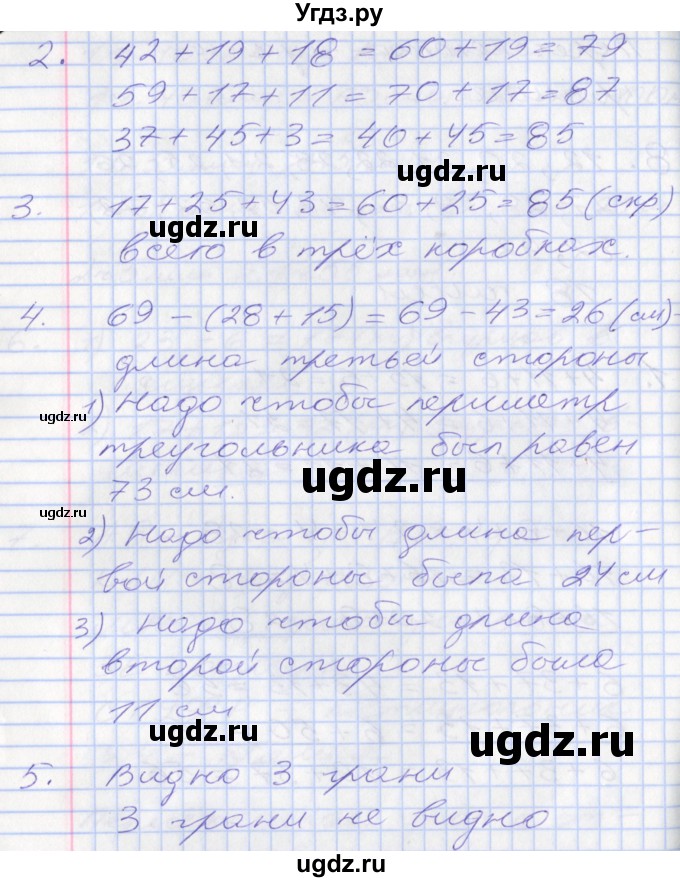 Угдз.ру
2. 42 + 19 + 18 = 60 + 19 = 79
59 + 17 + 11 = 70 + 17 = 87
37 + 45 + 3 = 40 + 45 = 85
ugdz.ru
3. 17 + 25 + 43 = 60 + 25 = 85 (скр)
ugdz.ru
всего в трёх коробках.
4. 69 - (28 + 15) = 69 - 43 = 26 (см) -
длина третьей стороны
ugdz.ru
1) Надо чтобы периметр
треугольника был равен
ugdz.ru
73 см.
ugdz.ru
2) Надо чтобы длина пер-
вой стороны была 24 см
3) Надо чтобы длина
второй стороны была
11 см
ugdz.ru
ugdz.ru
5. Видно 3 грани
3 грани не видно
ugdz.ru